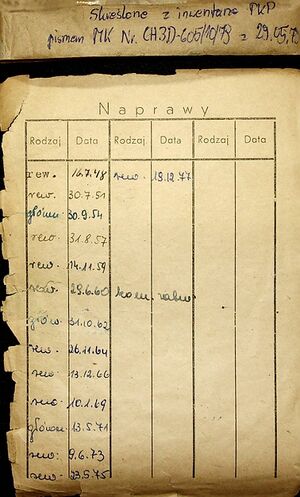 Skreślone z inwentarza PKP
pismem MK Nr. CH3D-605/10/79 z 29.05.79
Naprawy
Rodzaj Data Rodzaj Data Rodzaj Data
rew. 16.7.48 rew. 19.12.77
rew. 30.7.51
główn. 30.9.54
rew. 31.8.57
rew. 14.11.59
29.6.60 kom.
główn. 31.10.62
rew. 26.11.64
rew. 13.12.66
rew. 10.1.69
główn. 13.5.71
rew. 9.6.73
rew. 23.5.75